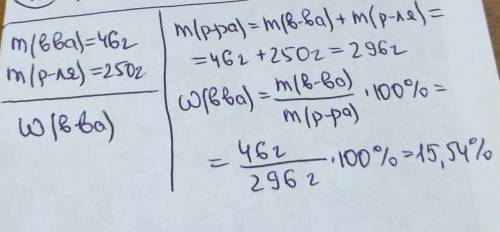 m(вва)=46г
m(р-ля)=250г
ω(в-ва)
m(р-ра)=m(в-ва)+m(р-ля)=
=46г+250г=296г
ω(вва)=m(в-ва)/m(р-ра)·100%=
=46г/296г·100%=15,54%